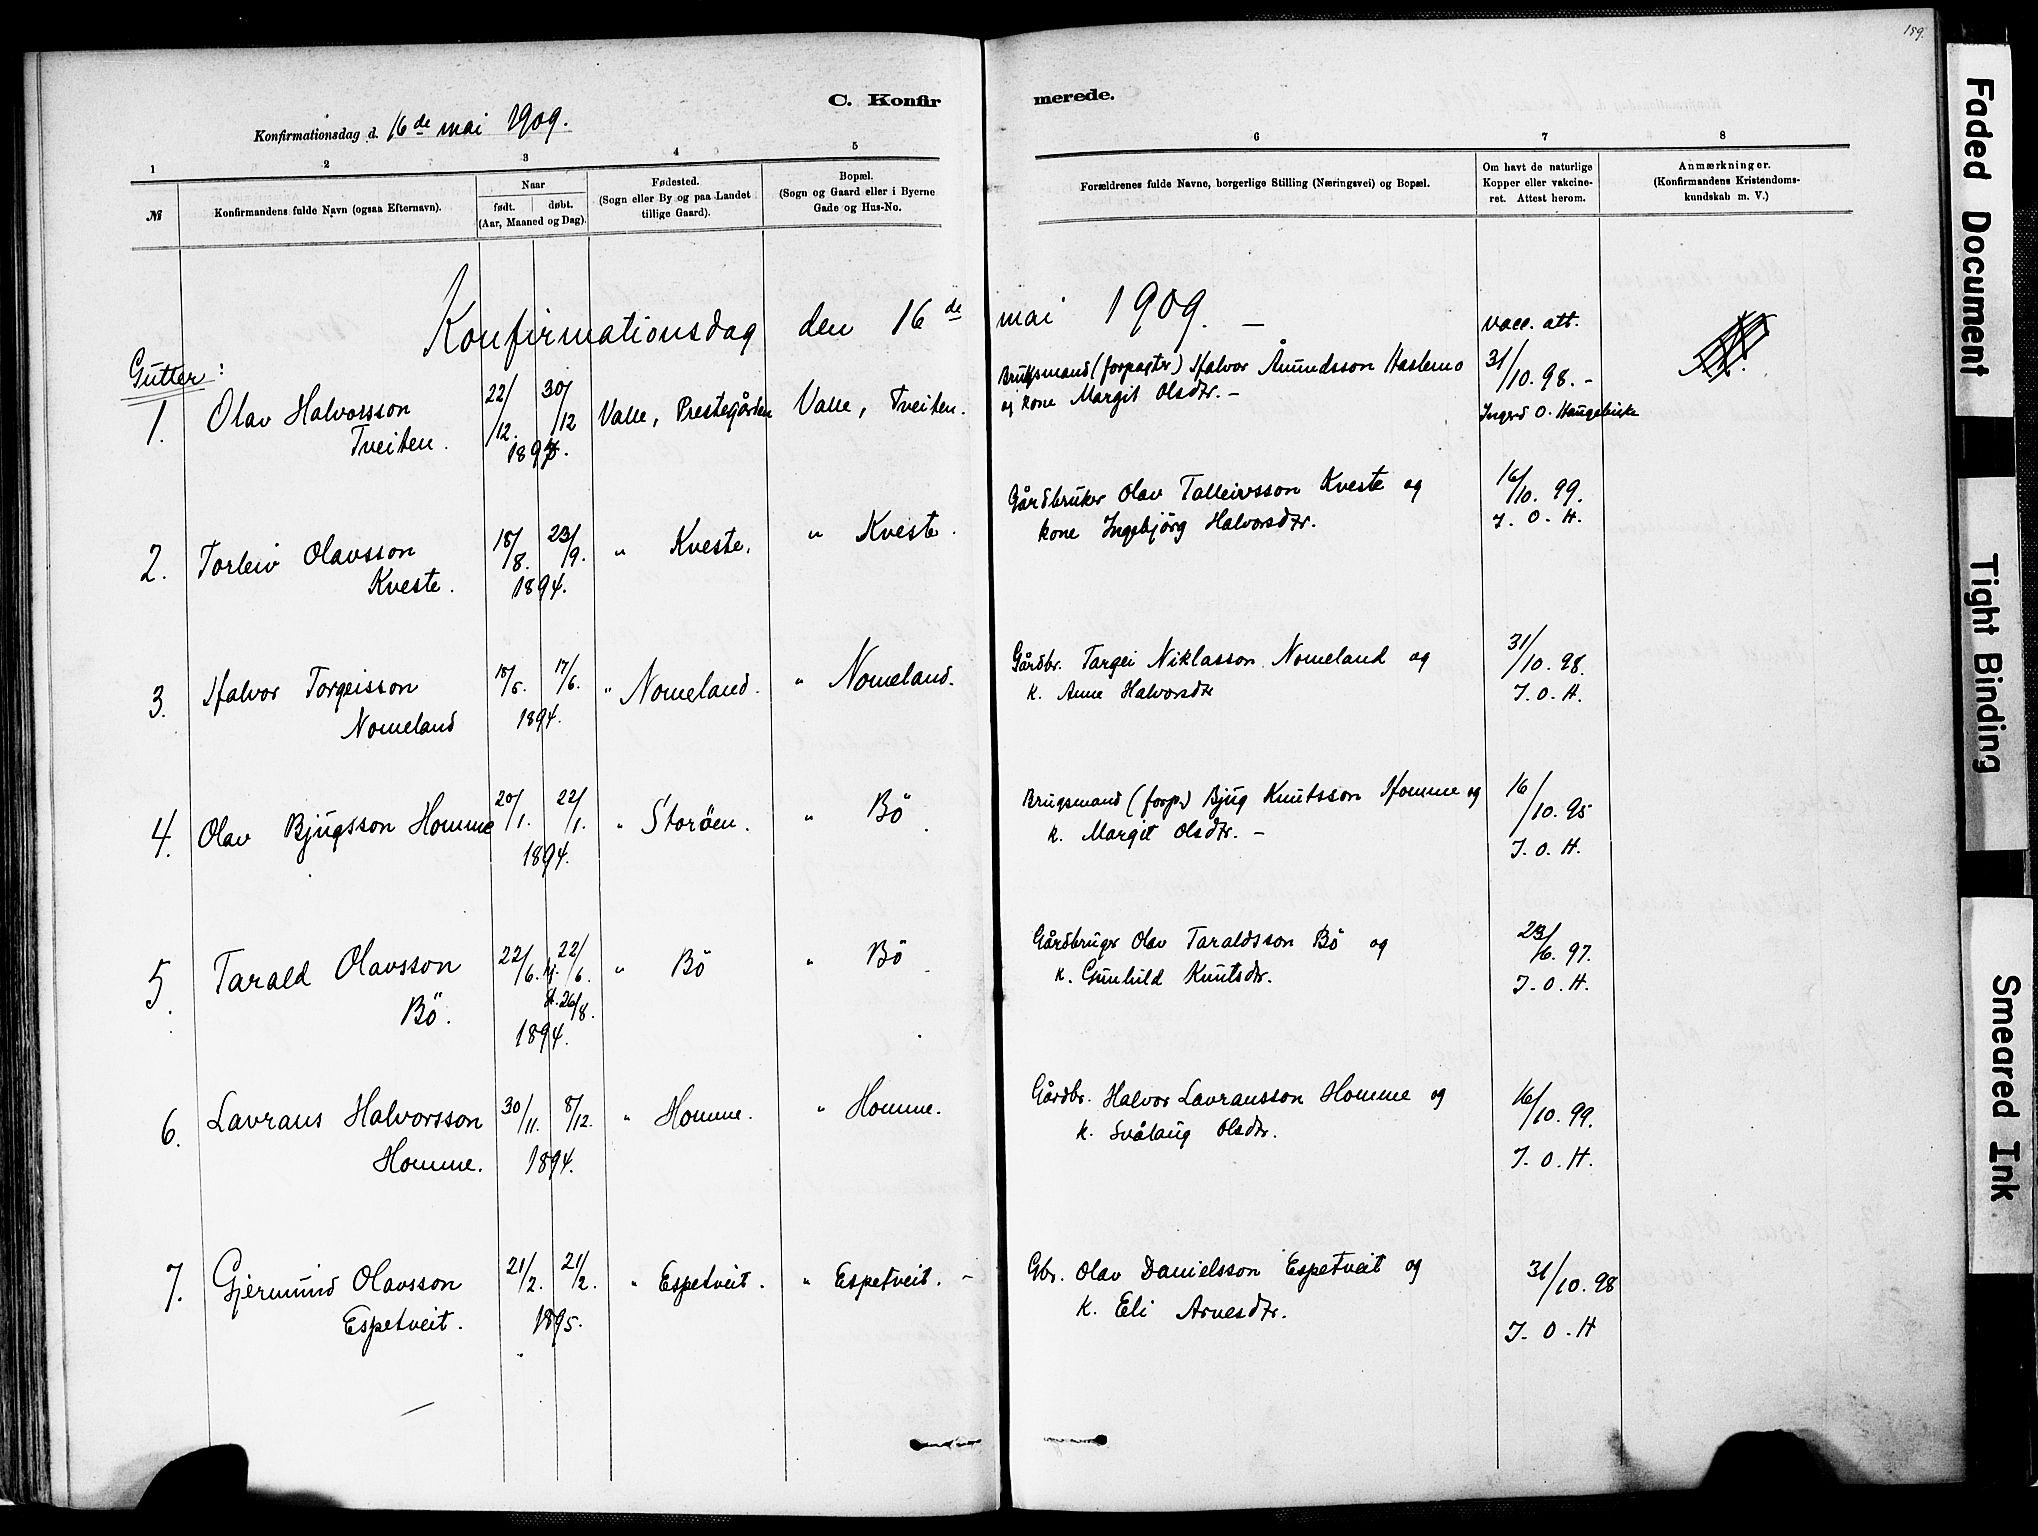 159.
C. Konfirmerede.
Konfirmationsdag d. 16de mai 1909.
1 2 3 4 5 6 7 8
№
Konfirmandens fulde Navn (ogsaa Efternavn).
Naar
født. døbt.
(Aar, Maaned og Dag).
Fødested.
(Sogn eller By og paa Landet
tillige Gaard).
Bopæl.
(Sogn og Gaard eller i Byerne
Gade og Hus-No.
Forældrenes fulde Navne, borgerlige Stilling (Næringsvei) og Bopæl.
Om havt de naturlige
Kopper eller vakcine-
ret. Attest herom.
Anmærkninger.
(Konfirmandens Kristendoms-
kundskab m. V.)
Konfirmationsdag den 16de mai 1909. –
Gutter:
1. Olav Halvorsson
Tveiten.
22/12. 30/12
189
Valle, Prestegården
Valle, Tveiten.
Brugsmand (forpagter) Halvor Åmundsson Haslemo
og kone Margit Olsdtr. –
vacc. att.
31/10. 98. –
Ingerd O. Haugebirke
2. Torleiv Olavsson
Kveste.
18/8. 23/9.
1894.
" Kveste.
" Kveste.
Gårdbruker Olav Talleivsson Kveste og
kone Ingebjörg Halvorsdtr.
16/10. 99.
I. O. H.
3. Halvor Torgeisson
Nomeland
18/5. 17/6.
1894.
" Nomeland.
" Nomeland.
Gårdbr. Targei Niklasson Nomeland og
k. Anne Halvorsdtr
31/10. 98.
I. O. H.
4. Olav Bjugsson Homme
20/1. 22/1.
1894.
" Storöen.
" Bö.
Brugsmand (forp.) Bjug Knutsson Homme og
k. Margit Olsdtr. –
16/10. 95
I. O. H.
5. Tarald Olavsson
Bö.
22/6. hj. 22/6.
st. 26/8.
1894.
" Bö
" Bö
Gårdbruger Olav Taraldsson Bö og
k. Gunhild Knutsdtr.
23/6. 97.
I. O. H.
6. Lavrans Halvorsson
Homme.
30/11. 8/12.
1894.
" Homme.
" Homme.
Gårdbr. Halvor Lavransson Homme og
k. Svålaug Olsdtr.
16/10. 99.
I. O. H.
7. Gjermund Olavsson
Espetveit.
21/2. 21/2.
1895.
" Espetveit.
" Espetveit. –
Gbr. Olav Danielsson Espetveit og
k. Eli Arnesdtr.
31/10. 98
I. O. H
Faded Document
Tight Binding
Smeared Ink